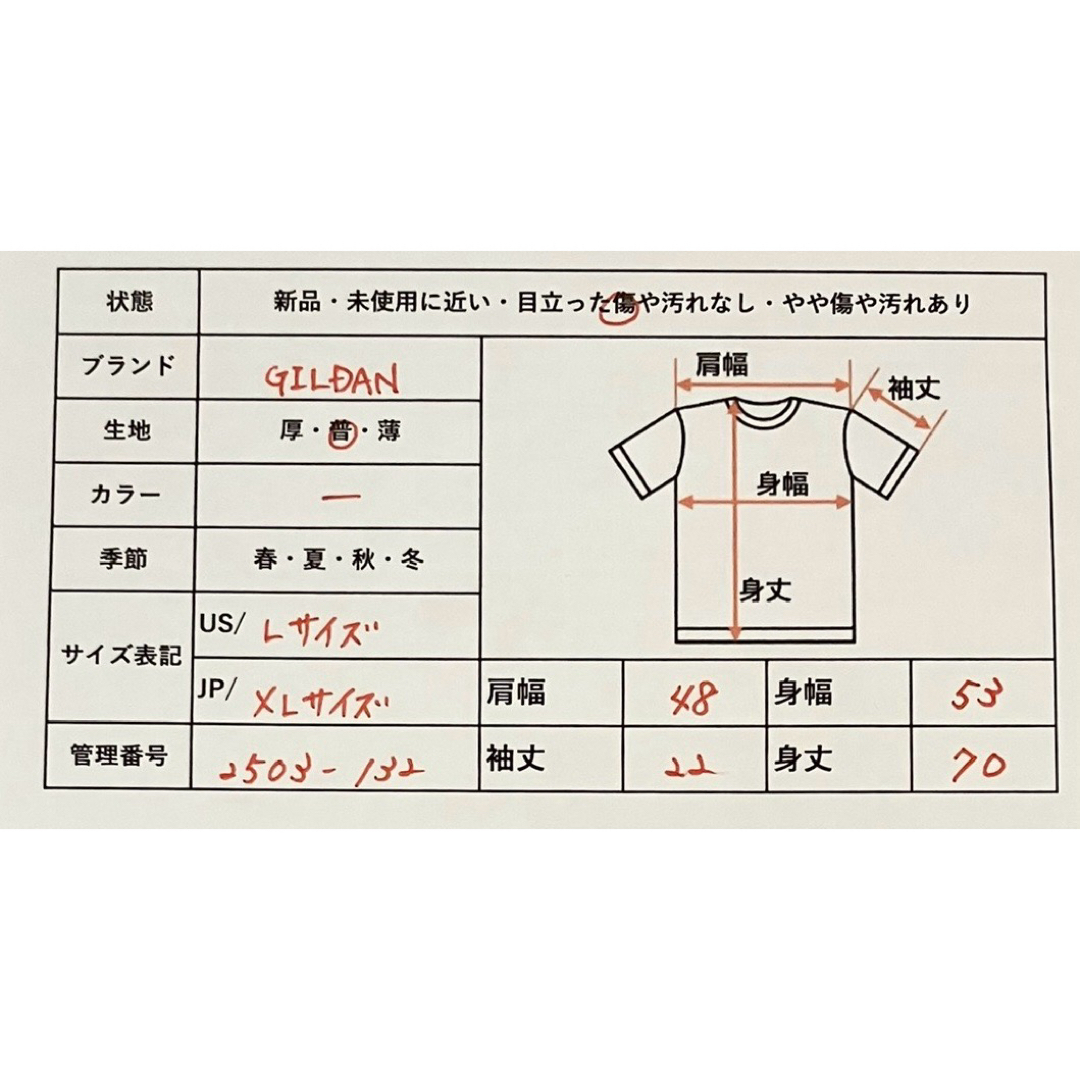 状態 新品・未使用に近い・目立った傷や汚れなし・やや傷や汚れあり
ブランド GILDAN
生地 厚・普・薄
カラー ー
季節 春・夏・秋・冬
サイズ表記
US/ Lサイズ
JP/ XLサイズ
管理番号 2503-132
肩幅
袖丈
身幅
身丈
肩幅 48 身幅 53
袖丈 22 身丈 70